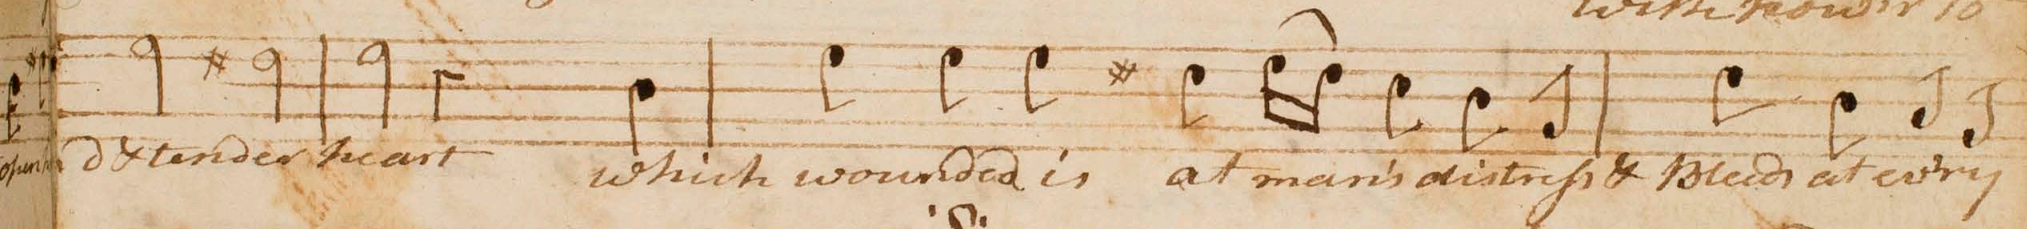 with Pow'r to
open'd & tender heart which wounded is at man's distress & Bleeds at ev'ry